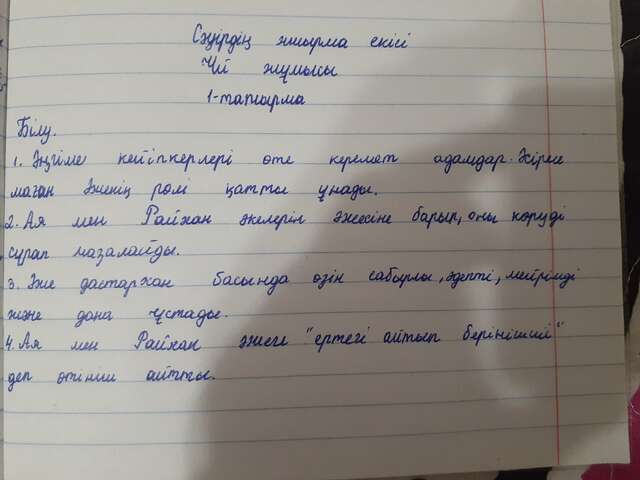 Сәуірдің жиырма екісі
Үй жұмысы
1-тапсырма
Білу.
1. Әңгіме кейіпкерлері өте керемет адамдар. Әсіресе
маған Әженің рөлі қатты ұнады.
2. Ая мен Райхан әкелерін әжесіне барып, оны көруді
сұрап мазалайды.
3. Әже дастархан басында өзін сабырлы, әдепті, мейірімді
және дана ұстады.
4. Ая мен Райхан әжеге "ертегі айтып беріңізші"
деп өтініш айтты.